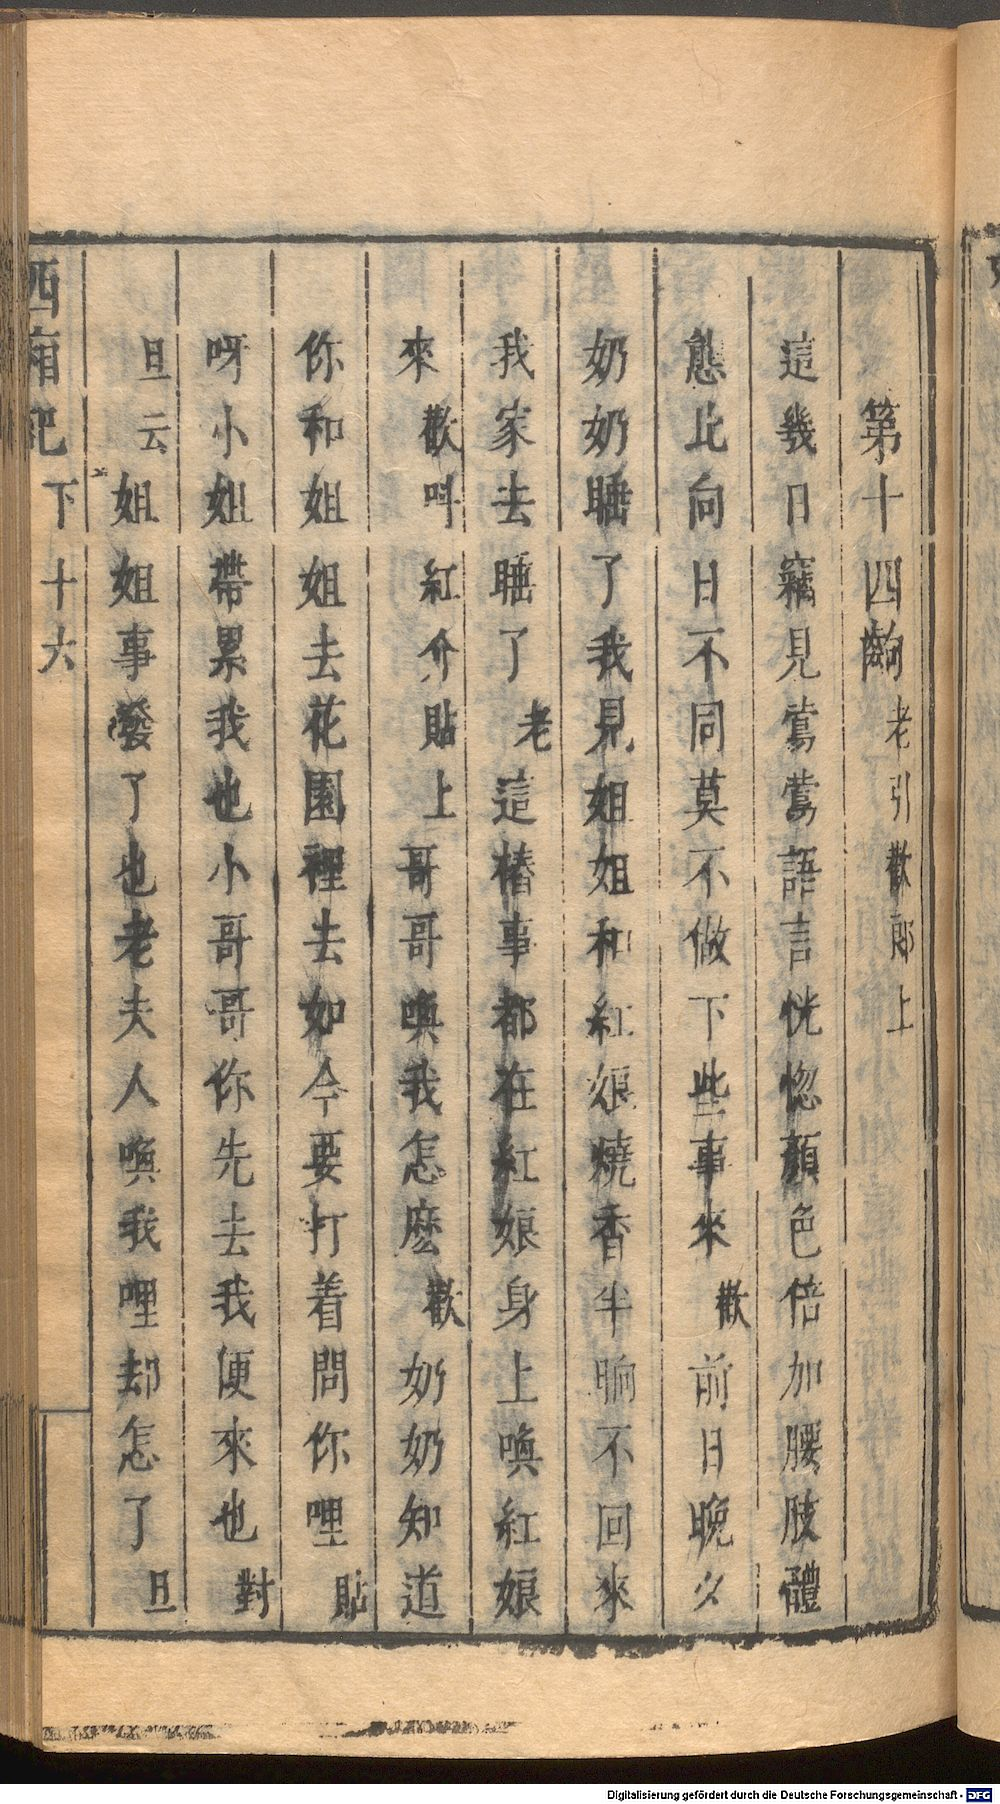 第十四齣老引歡郎上
這幾日竊見鶯鶯語言恍惚顏色倍加腰肢體
態比向日不同莫不做下些事來歡前日晚夕
奶奶睡了我見姐姐和紅娘燒香半晌不回來
我家去睡了老這樁事都在紅娘身上喚紅娘
來歡呌紅介貼上哥哥喚我怎麽歡奶奶知道
你和姐姐去花園裡去如今要打着問你哩貼
呀小姐帶累我也小哥哥你先去我便來也對
旦云姐姐事發了也老夫人喚我哩却怎了旦
西廂記 下 十六
Digitalisierung gefördert durch die Deutsche Forschungsgemeinschaft - DFG